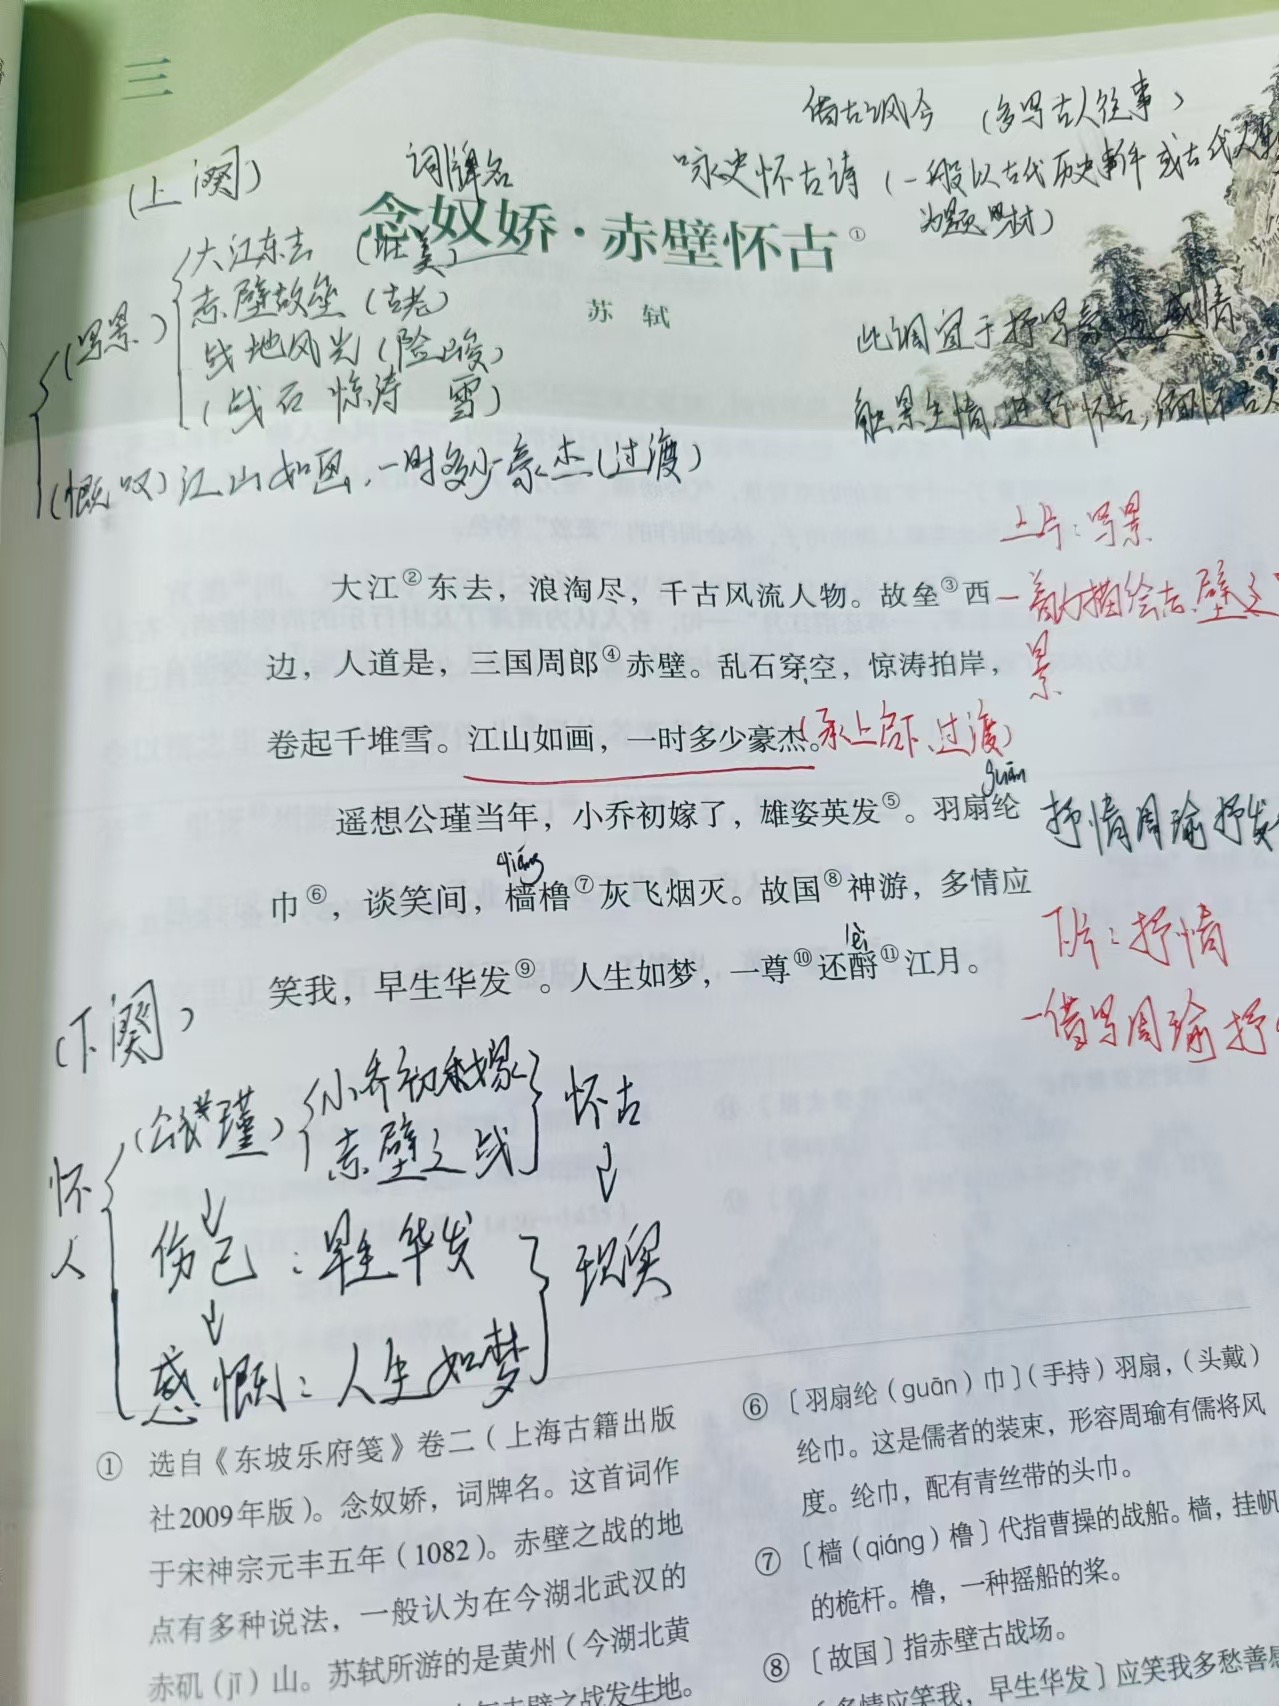 三
借古讽今 (多写古人往事)
(上阕)
词牌名
咏史怀古诗 (一般以古代历史事件或古代
为题材)
念奴娇·赤壁怀古①
苏 轼
大江东去 (壮美)
赤壁故垒 (古老)
(写景)
战地风光 (险峻)
(战石 惊涛 雪)
(慨叹) 江山如画,一时多少豪杰 (过渡)
此调宜于抒写豪迈感情
触景生情,进行怀古,缅怀古
上片:写景
大江②东去,浪淘尽,千古风流人物。故垒③西
一着力描绘赤壁之
边,人道是,三国周郎④赤壁。乱石穿空,惊涛拍岸,
景
卷起千堆雪。江山如画,一时多少豪杰。
(承上启下、过渡)
guān
遥想公瑾当年,小乔初嫁了,雄姿英发⑤。羽扇纶
抒情周瑜抒发
qiáng
巾⑥,谈笑间,樯橹⑦灰飞烟灭。故国⑧神游,多情应
lèi
下片:抒情
笑我,早生华发⑨。人生如梦,一尊⑩还酹⑪江月。
一借写周瑜抒
(下阕)
怀人
(公瑾)
小乔初嫁
赤壁之战
怀古
伤己:早生华发
现实
感慨:人生如梦
① 选自《东坡乐府笺》卷二(上海古籍出版
社2009年版)。念奴娇,词牌名。这首词作
于宋神宗元丰五年(1082)。赤壁之战的地
点有多种说法,一般认为在今湖北武汉的
赤矶(jī)山。苏轼所游的是黄州(今湖北黄
赤壁之战发生地。
⑥ 〔羽扇纶(guān)巾〕(手持)羽扇,(头戴)
纶巾。这是儒者的装束,形容周瑜有儒将风
度。纶巾,配有青丝带的头巾。
⑦ 〔樯(qiáng)橹〕代指曹操的战船。樯,挂帆
的桅杆。橹,一种摇船的桨。
⑧ 〔故国〕指赤壁古战场。
〔多情应笑我,早生华发〕应笑我多愁善感